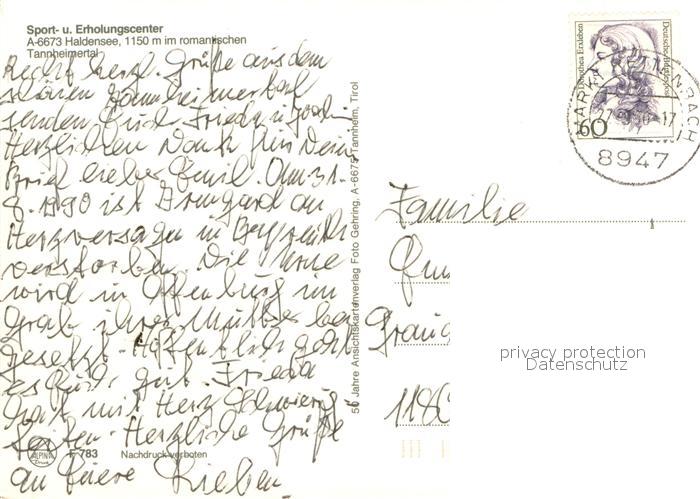 Sport- u. Erholungscenter
A-6673 Haldensee, 1150 m im romantischen
Tannheimertal
Recht herzl. Grüße aus dem
schönen Tannheimertal
senden Euch Frieda u.
Herzlichen Dank für Dein
Brief lieber Emil. Am 31.
8. 1990 ist Irmgard an
Herzversagen in
verstorben. Die Urne
wird in Offenburg im
Grab ihrer Mutter bei
gesetzt. Hoffentlich geht
es Euch gut. Frieda
hat mit Herz Schwierig-
keiten. Herzliche Grüße
an Euere Lieben
ALPINA
Druck
F 783 Nachdruck verboten
50 Jahre Ansichtskartenverlag Foto Gehring, A-6675 Tannheim, Tirol
Dorothea Erxleben
Deutsche Bundespost
60
8947
Familie
privacy protection
Datenschutz